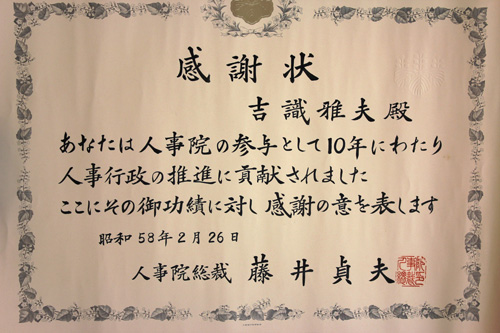 感謝状
吉識雅夫殿
あなたは人事院の参与として10年にわたり
人事行政の推進に貢献されました
ここにその御功績に対し感謝の意を表します
昭和58年2月26日
人事院総裁 藤井貞夫